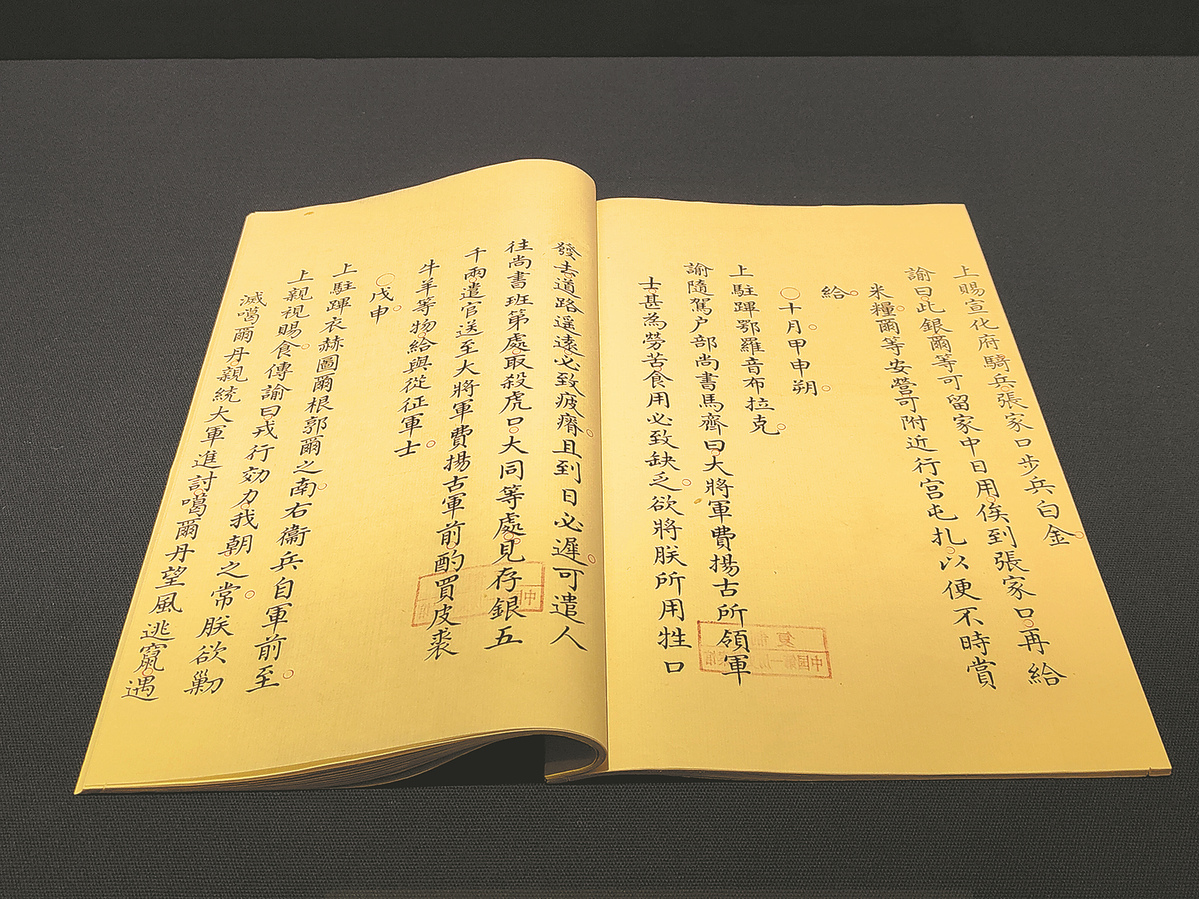 上賜宣化府騎兵張家口步兵白金。
諭曰此銀爾等可留家中日用俟到張家口再給
米糧爾等安營可附近行宮屯扎以便不時賞
給。
○十月甲申朔。
上駐蹕鄂羅音布拉克。
諭隨駕户部尚書馬齊曰大將軍費揚古所領軍
士甚為勞苦食用必致缺乏。欲將朕所用牲口
發去道路遥遠必致疲瘠。且到日必遲。可遣人
往尚書班第處取殺虎口大同等處見存銀五
千兩遣官送至大將軍費揚古軍前酌買皮裘
牛羊等物給與從征軍士。
○戊申。
上駐蹕衣赫圖爾根郭爾之南右衞兵自軍前至。
上親視賜食。傳諭曰戎行効力我朝之常。朕欲勦
滅噶爾丹親統大軍進討噶爾丹望風逃竄遇
复
中国第一
中